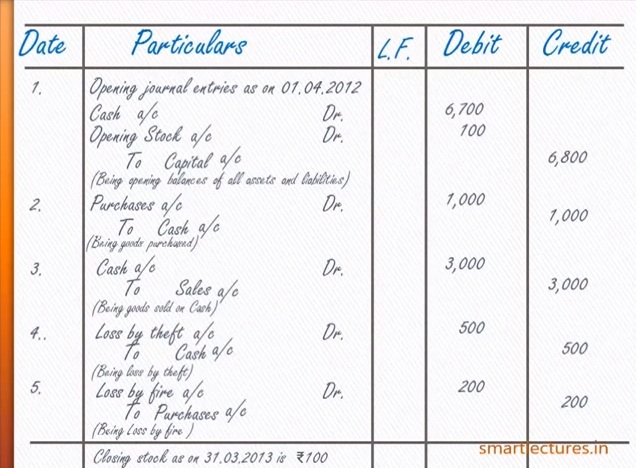 Date Particulars L.F. Debit Credit
1. Opening journal entries as on 01.04.2012
Cash a/c Dr. 6,700
Opening Stock a/c Dr. 100
To Capital a/c 6,800
(Being opening balances of all assets and liabilities)
2. Purchases a/c Dr. 1,000
To Cash a/c 1,000
(Being goods purchased)
3. Cash a/c Dr. 3,000
To Sales a/c 3,000
(Being goods sold on Cash)
4.. Loss by theft a/c Dr. 500
To Cash a/c 500
(Being loss by theft)
5. Loss by fire a/c Dr. 200
To Purchases a/c 200
(Being Loss by fire )
Closing stock as on 31.03.2013 is ₹100
smartlectures.in